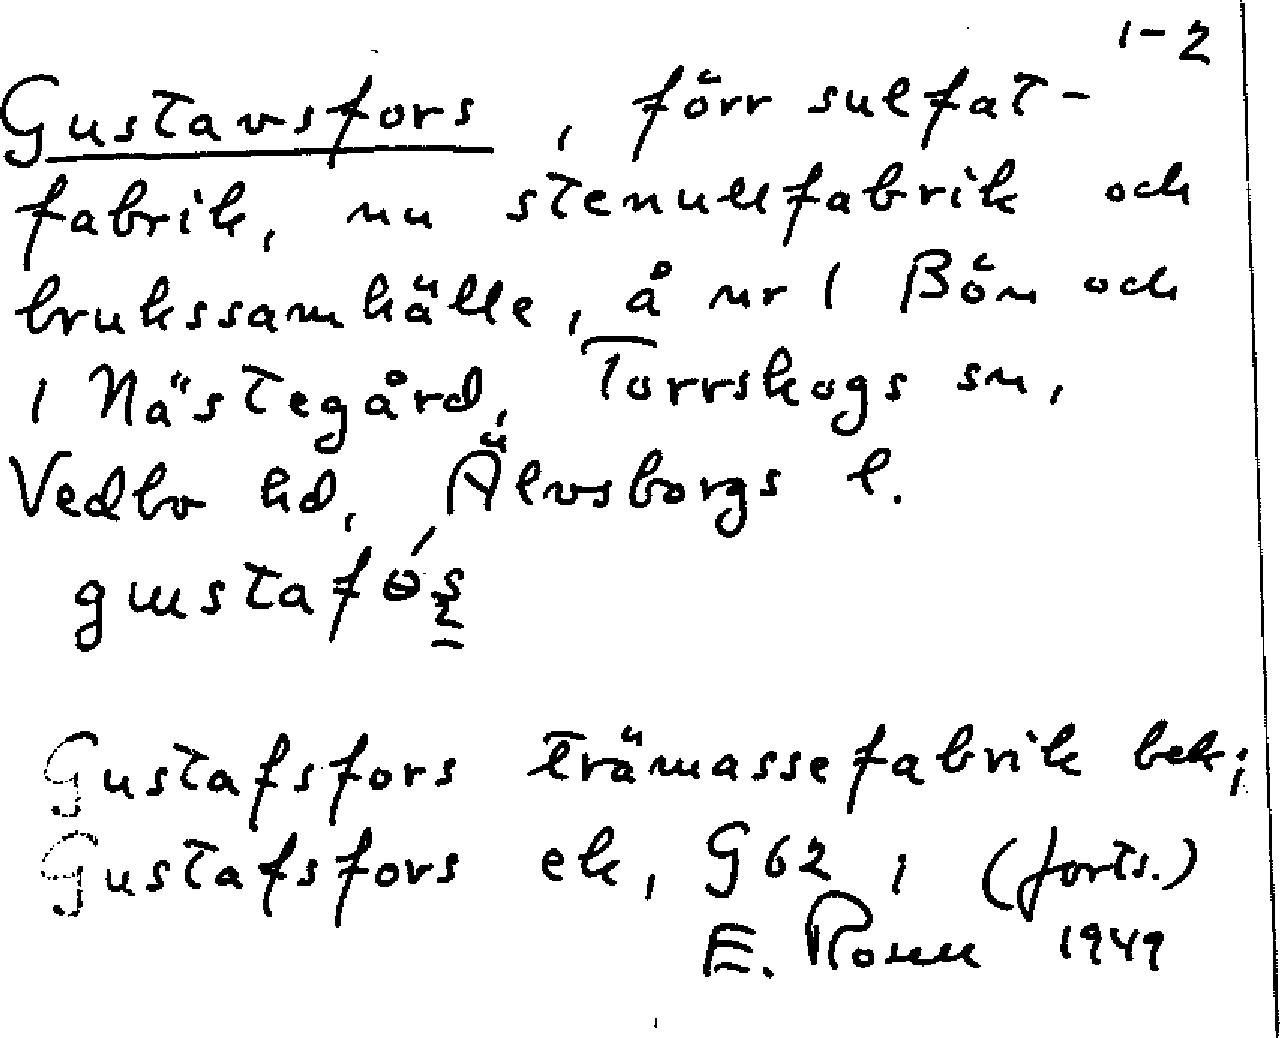 1-2
Gustavsfors, förr sulfat-
fabrik, nu stenullfabrik och
brukssamhälle, å nr 1 Bön och
1 Nästegård, Torrskogs sn,
Vedbo hd, Älvsborgs l.
Gustafsfors trämassefabrik bek;
Gustafsfors ek, G62, (forts.)
E. Rosell 1949